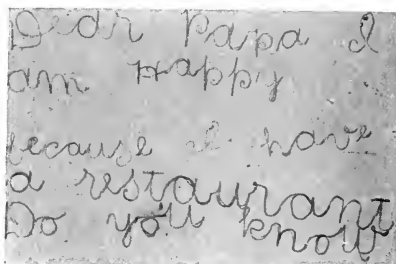 Dear Papa I
am Happy
because I have
a restaurant
Do you know